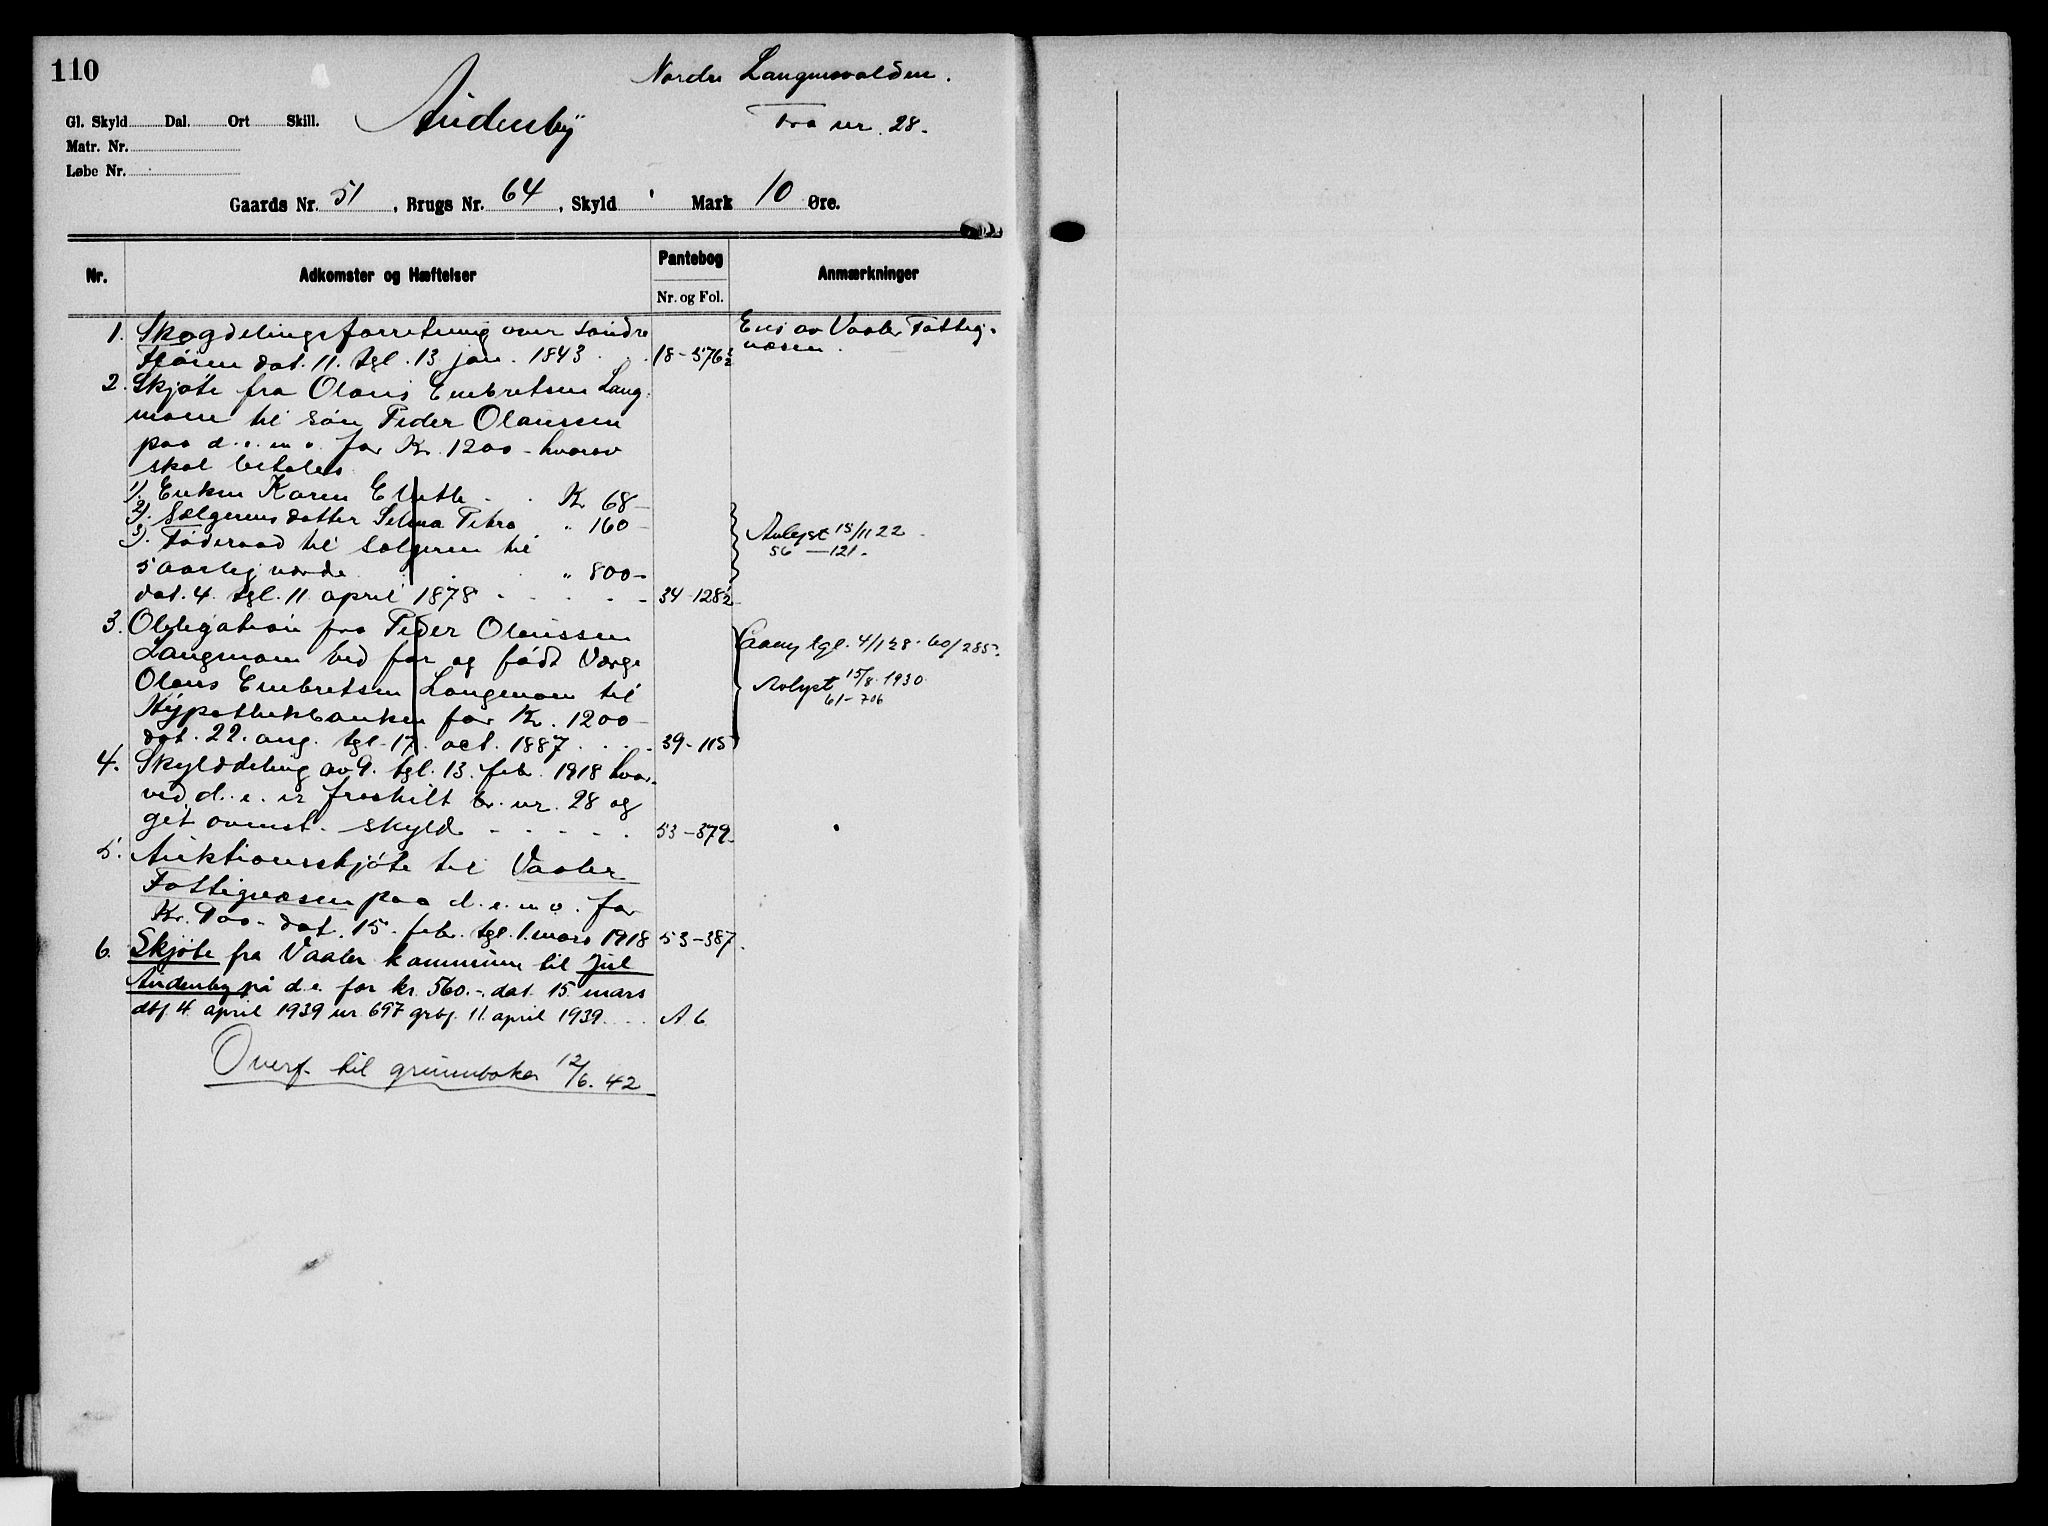 110
Nordre Langmovolden.
Audenby
Fra nr. 28.
Gl. Skyld Dal. Ort Skill.
Matr. Nr.
Løbe Nr.
Gaards Nr. 51, Brugs Nr. 64, Skyld Mark 10 Øre.
Nr. Adkomster og Hæftelser Pantebog Nr. og Fol. Anmærkninger
1. Skogdelingsforretning over søndre
dat. 11. tgl. 13 jan. 1843 18-576½
Eies av Vaaler Fattig-
væsen.
2. Skjøte fra Olaus Embretsen Lang-
moen til søn Peder Olaussen
paa d. e. m. o. for Kr. 1200- hvorav
skal betales
1). Enken Karen Kr 68-
2). Sælgerens datter Selma Petra " 160-
3). Føderaad til sælgeren til
5 aarlig værde " 800-
dat. 4. tgl. 11 april 1878 34-128½
Avlyst 15/11 22
56-121.
3. Obligation fra Peder Olaussen
Langmoen ved far og født Værge
Olaus Embretsen Langmoen til
Hypothekbanken for Kr. 1200-
dat. 22. aug. tgl. 17. oct. 1887 39-115
tgl. 4/1 28. 60/285.
Avlyst 15/8 1930
61-706
4. Skylddeling av 9. tgl. 13. feb. 1918 hvor-
ved d. e. er fraskilt br. nr. 28 og
git ovenst. skyld 53-379.
5. Auktionsskjøte til Vaaler
Fattigvæsen paa d. e. m. o. for
Kr. 900- dat. 15. febr. tgl. 1. mars 1918 53-387.
6. Skjøte fra Vaaler kommune til Jul
Audenby på d.e. for kr. 560.-, dat 15 mars
dbf. 4. april 1939 nr. 697 grbf. 11. april 1939 A 6
Overf. til grunnboken 12/6. 42